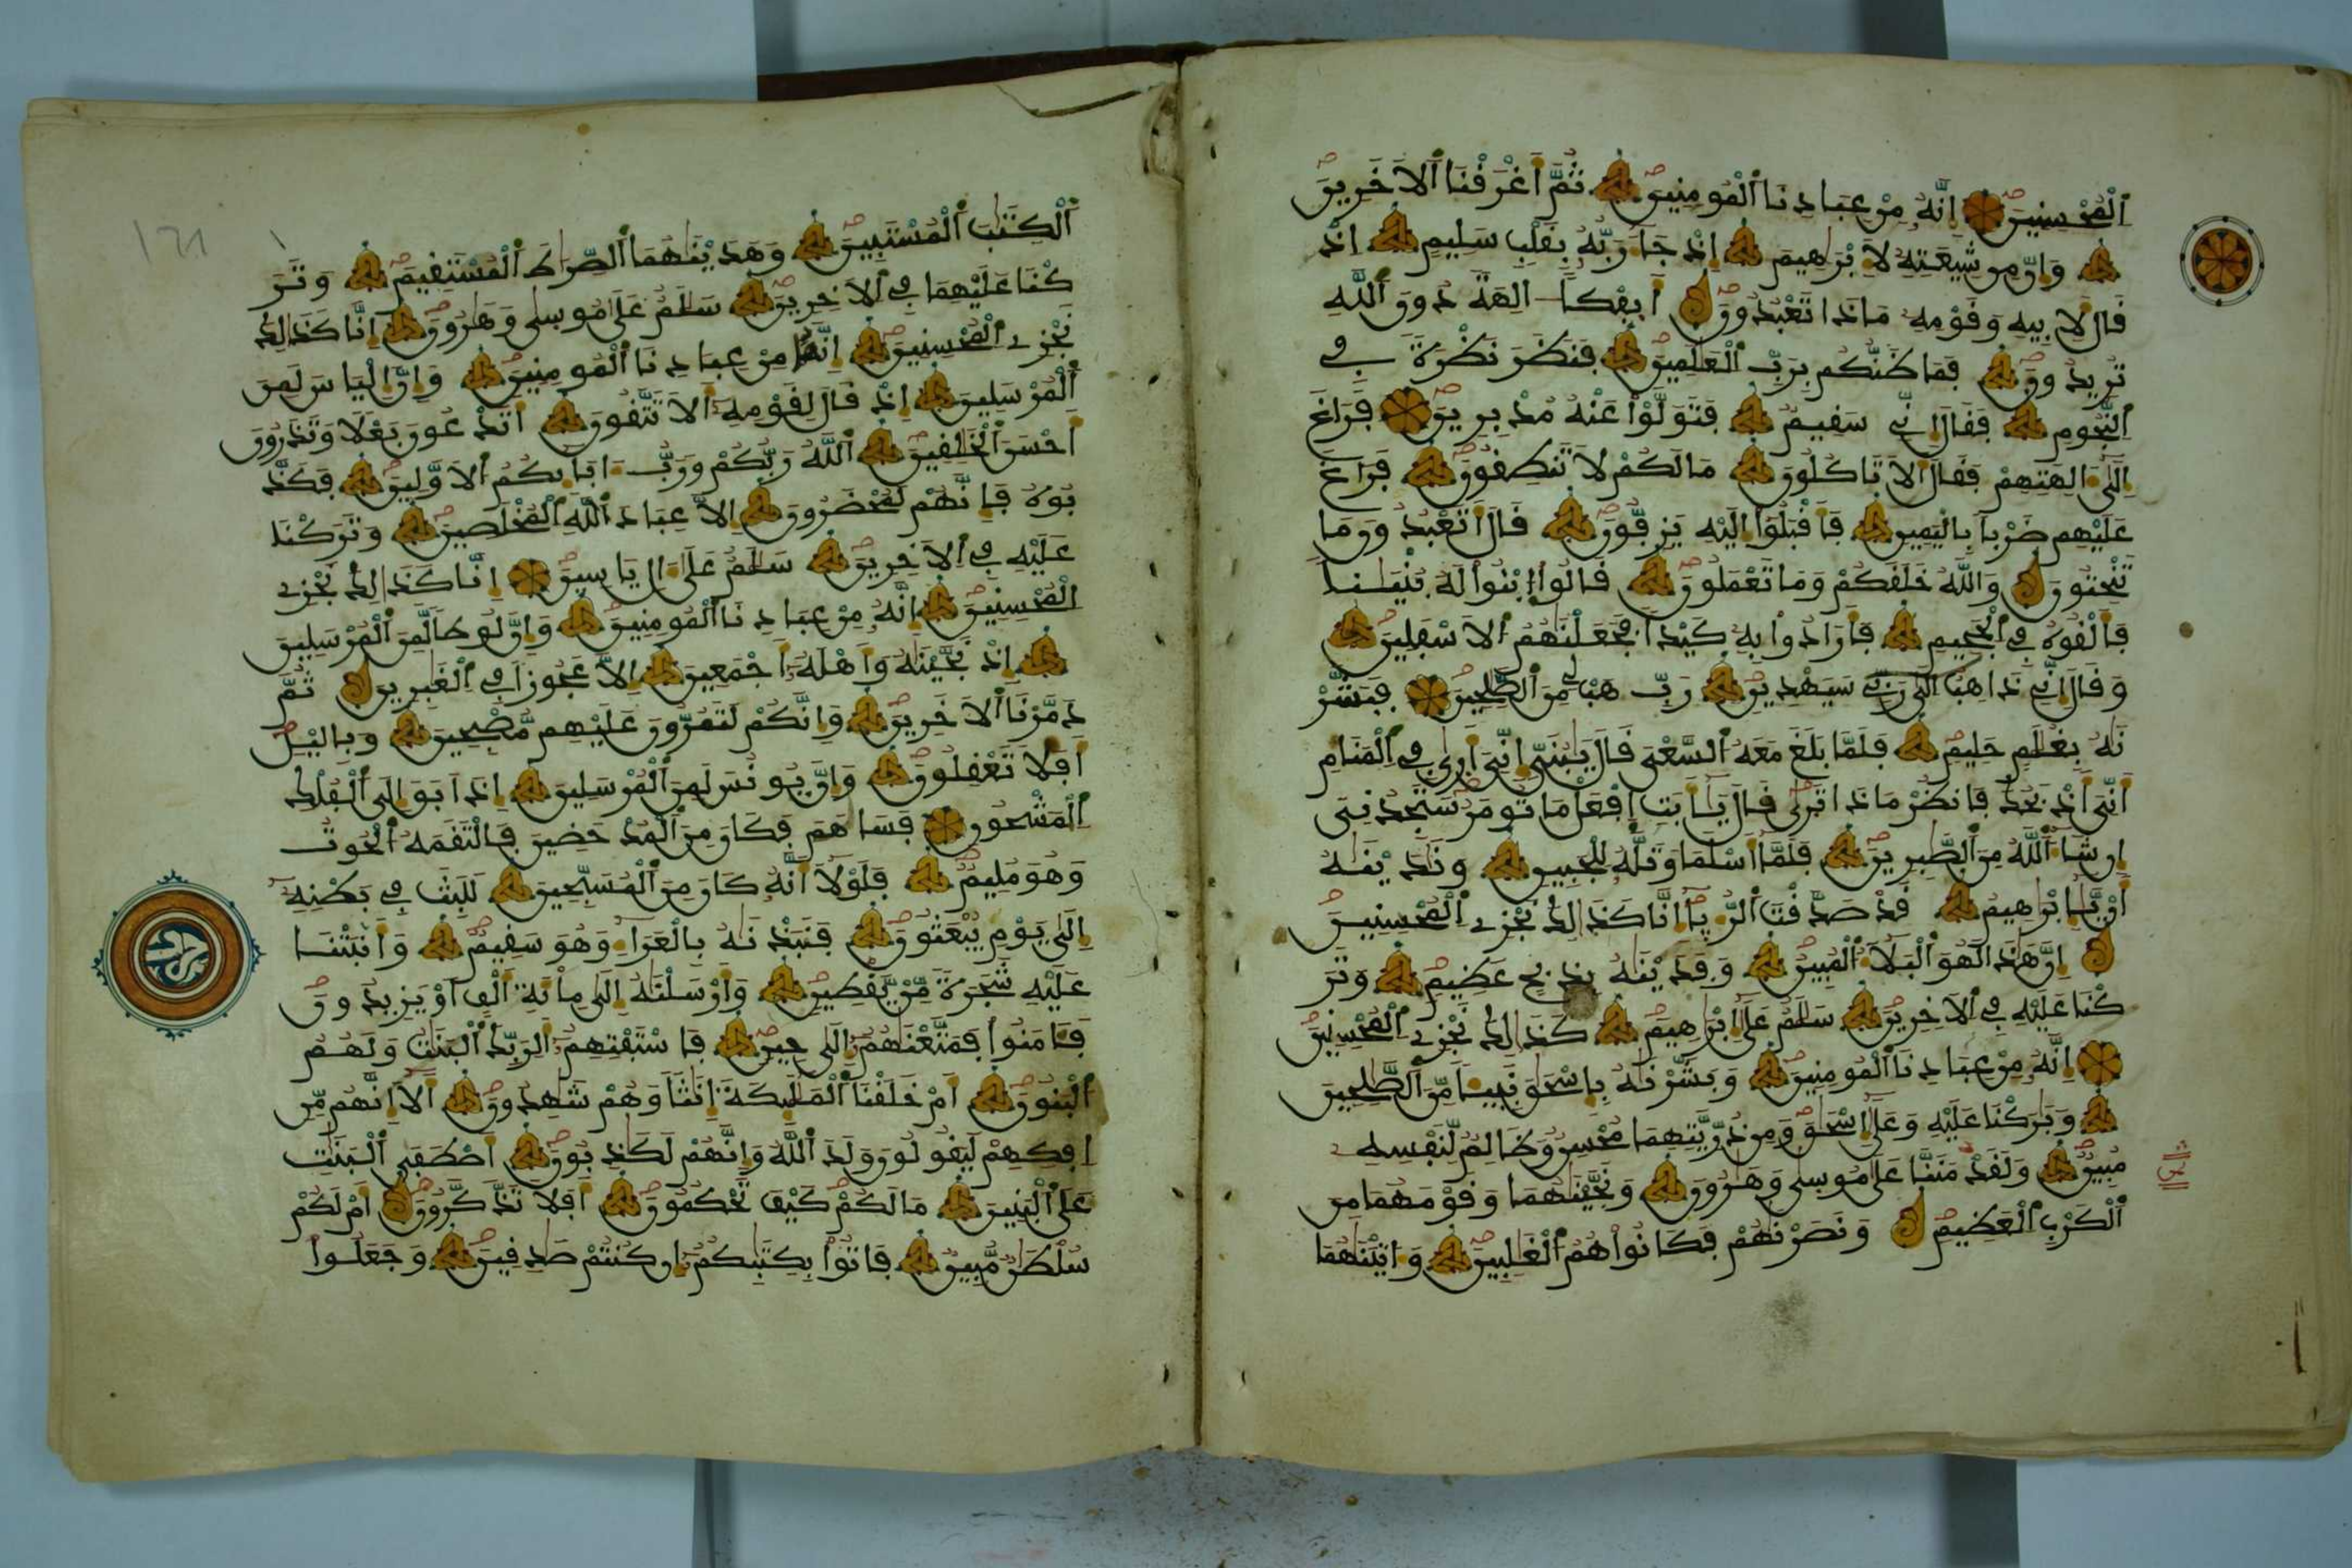 الْمُحْسِنِينَ إِنَّهُ مِنْ عِبَادِنَا الْمُومِنِينَ ثُمَّ أَغْرَقْنَا الَاخَرِينَ
وَإِنَّ مِن شِيعَتِهِ لَإِبْرَاهِيمَ إِذْ جَاءَ رَبَّهُ بِقَلْبٍ سَلِيمٍ إِذْ
قَالَ لِأَبِيهِ وَقَوْمِهِ مَاذَا تَعْبُدُونَ أَيِفْكاً ـالِهَةً دُونَ اللَّهِ
تُرِيدُونَ فَمَا ظَنُّكُم بِرَبِّ الْعَٰلَمِينَ فَنَظَرَ نَظْرَةً فِي
النُّجُومِ فَقَالَ إِنِّي سَقِيمٌ فَتَوَلَّوْاْ عَنْهُ مُدْبِرِينَ فَرَاغَ
إِلَىٰ ءَالِهَتِهِمْ فَقَالَ أَلَا تَاكُلُونَ مَا لَكُمْ لَا تَنطِقُونَ فَرَاغَ
عَلَيْهِمْ ضَرْباً بِالْيَمِينِ فَأَقْبَلُواْ إِلَيْهِ يَزِفُّونَ قَالَ أَتَعْبُدُونَ مَا
تَنْحِتُونَ وَاللَّهُ خَلَقَكُمْ وَمَا تَعْمَلُونَ قَالُواْ ابْنُواْ لَهُ بُنْيَٰناً
فَأَلْقُوهُ فِي الْجَحِيمِ فَأَرَادُواْ بِهِ كَيْداً فَجَعَلْنَٰهُمُ الَاسْفَلِينَ
وَقَالَ إِنِّي ذَاهِبٌ إِلَىٰ رَبِّي سَيَهْدِينِ رَبِّ هَبْ لِي مِنَ الصَّٰلِحِينَ فَبَشَّرْ
نَٰهُ بِغُلَٰمٍ حَلِيمٍ فَلَمَّا بَلَغَ مَعَهُ السَّعْيَ قَالَ يَٰبُنَيِّ إِنِّيَ أَرَىٰ فِي الْمَنَامِ
أَنِّيَ أَذْبَحُكَ فَانظُرْ مَاذَا تَرَىٰ قَالَ يَٰأَبَتِ افْعَلْ مَا تُومَرُ سَتَجِدُنِيَ
إِن شَاءَ اللَّهُ مِنَ الصَّٰبِرِينَ فَلَمَّا أَسْلَمَا وَتَلَّهُ لِلْجَبِينِ وَنَٰدَيْنَٰهُ
أَنْ يَٰإِبْرَاهِيمُ قَدْ صَدَّقْتَ الرُّءْيَا إِنَّا كَذَٰلِكَ نَجْزِي الْمُحْسِنِينَ
إِنَّ هَٰذَا لَهُوَ الْبَلَٰؤُاْ الْمُبِينُ وَفَدَيْنَٰهُ بِذِبْحٍ عَظِيمٍ وَتَرَ
كْنَا عَلَيْهِ فِي الَاخِرِينَ سَلَٰمٌ عَلَىٰ إِبْرَاهِيمَ كَذَٰلِكَ نَجْزِي الْمُحْسِنِينَ
إِنَّهُ مِنْ عِبَادِنَا الْمُومِنِينَ وَبَشَّرْنَٰهُ بِإِسْحَٰقَ نَبِيئاً مِّنَ الصَّٰلِحِينَ
وَبَٰرَكْنَا عَلَيْهِ وَعَلَىٰ إِسْحَٰقَ وَمِن ذُرِّيَّتِهِمَا مُحْسِنٌ وَظَالِمٌ لِّنَفْسِهِ
مُبِينٌ وَلَقَدْ مَنَنَّا عَلَىٰ مُوسَىٰ وَهَٰرُونَ وَنَجَّيْنَٰهُمَا وَقَوْمَهُمَا مِنَ
الْكَرْبِ الْعَظِيمِ وَنَصَرْنَٰهُمْ فَكَانُواْ هُمُ الْغَٰلِبِينَ وَءَاتَيْنَٰهُمَا
الْكِتَٰبَ الْمُسْتَبِينَ وَهَدَيْنَٰهُمَا الصِّرَٰطَ الْمُسْتَقِيمَ وَتَرَ
كْنَا عَلَيْهِمَا فِي الَاخِرِينَ سَلَٰمٌ عَلَىٰ مُوسَىٰ وَهَٰرُونَ إِنَّا كَذَٰلِكَ
نَجْزِي الْمُحْسِنِينَ إِنَّهُمَا مِنْ عِبَادِنَا الْمُومِنِينَ وَإِنَّ إِلْيَاسَ لَمِنَ
الْمُرْسَلِينَ إِذْ قَالَ لِقَوْمِهِ أَلَا تَتَّقُونَ أَتَدْعُونَ بَعْلًا وَتَذَرُونَ
أَحْسَنَ الْخَٰلِقِينَ اللَّهُ رَبُّكُمْ وَرَبُّ ءَابَائِكُمُ الَاوَّلِينَ فَكَذَّ
بُوهُ فَإِنَّهُمْ لَمُحْضَرُونَ إِلَّا عِبَادَ اللَّهِ الْمُخْلَصِينَ وَتَرَكْنَا
عَلَيْهِ فِي الَاخِرِينَ سَلَٰمٌ عَلَىٰ ءَالِ يَاسِينَ إِنَّا كَذَٰلِكَ نَجْزِي
الْمُحْسِنِينَ إِنَّهُ مِنْ عِبَادِنَا الْمُومِنِينَ وَإِنَّ لُوطاً لَّمِنَ الْمُرْسَلِينَ
إِذْ نَجَّيْنَٰهُ وَأَهْلَهُ أَجْمَعِينَ إِلَّا عَجُوزاً فِي الْغَٰبِرِينَ ثُمَّ
دَمَّرْنَا الَاخَرِينَ وَإِنَّكُمْ لَتَمُرُّونَ عَلَيْهِم مُّصْبِحِينَ وَبِاليْلِ
أَفَلَا تَعْقِلُونَ وَإِنَّ يُونُسَ لَمِنَ الْمُرْسَلِينَ إِذَ ابَقَ إِلَى الْفُلْكِ
الْمَشْحُونِ فَسَاهَمَ فَكَانَ مِنَ الْمُدْحَضِينَ فَالْتَقَمَهُ الْحُوتُ
وَهُوَ مُلِيمٌ فَلَوْلَا أَنَّهُ كَانَ مِنَ الْمُسَبِّحِينَ لَلَبِثَ فِي بَطْنِهِ
إِلَىٰ يَوْمِ يُبْعَثُونَ فَنَبَذْنَٰهُ بِالْعَرَاءِ وَهُوَ سَقِيمٌ وَأَنبَتْنَا
عَلَيْهِ شَجَرَةً مِّنْ يَّقْطِينٍ وَأَرْسَلْنَٰهُ إِلَىٰ مِاْئَةِ أَلْفٍ أَوْ يَزِيدُونَ
فَـَٔامَنُواْ فَمَتَّعْنَٰهُمُ إِلَىٰ حِينٍ فَاسْتَفْتِهِمُ أَلِرَبِّكَ الْبَنَٰتُ وَلَهُمُ
الْبَنُونَ أَمْ خَلَقْنَا الْمَلَٰئِكَةَ إِنَٰثاً وَهُمْ شَٰهِدُونَ أَلَا إِنَّهُم مِّنِ
اِفْكِهِمْ لَيَقُولُونَ وَلَدَ اللَّهُ وَإِنَّهُمْ لَكَٰذِبُونَ أَصْطَفَى الْبَنَاتِ
عَلَى الْبَنِينَ مَا لَكُمْ كَيْفَ تَحْكُمُونَ أَفَلَا تَذَّكَّرُونَ أَمْ لَكُمْ
سُلْطَٰنٌ مُّبِينٌ فَاتُواْ بِكِتَٰبِكُمُ إِن كُنتُمْ صَٰدِقِينَ وَجَعَلُواْ